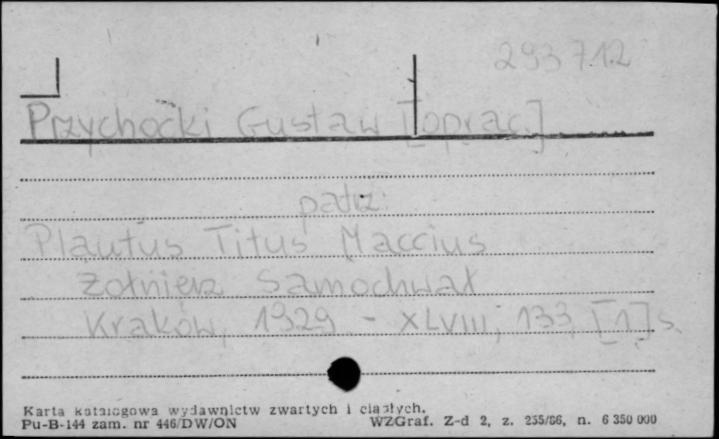 293712
Przychocki Gustaw [oprac.]
patrz:
Plautus Titus Maccius
Żołnierz Samochwał
Kraków, 1929 - XLVIII, 133, [1] s.
Karta katalogowa wydawnictw zwartych i ciągłych.
Pu-B-144 zam. nr 446/DW/ON WZGraf. Z-d 2, z. 255/86, n. 6 350 000